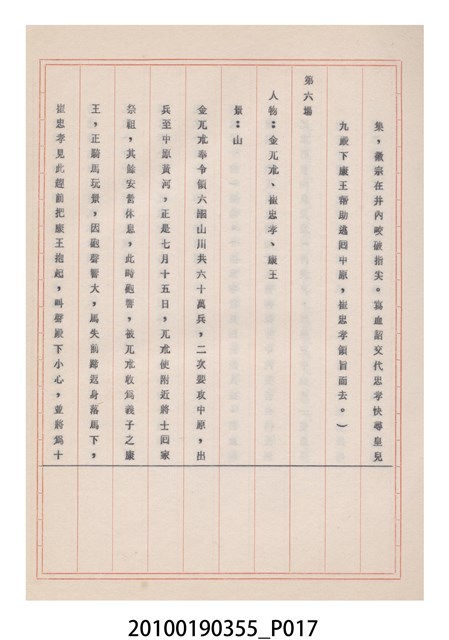 集，徽宗在井內咬破指尖。寫血詔交代忠孝快尋皇兒
九殿下康王幫助逃回中原，崔忠孝領旨而去。）
第六場
人物：金兀朮、崔忠孝、康王
景：山
金兀朮奉令領六國山川共六十萬兵，二次要攻中原，出
兵至中原黃河，正是七月十五日，兀朮使附近將士回家
祭祖，其餘安營休息，此時砲響，被兀朮收為義子之康
王，正騎馬玩景，因砲聲響大，馬失前蹄返身落馬下，
崔忠孝見此趕前把康王抱起，叫聲殿下小心，並將為十
20100190355_P017